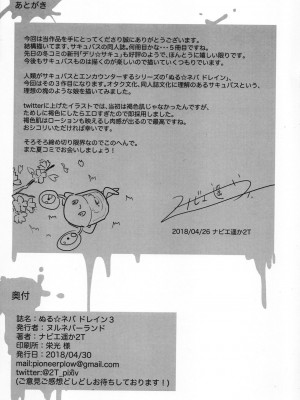 あとがき
今回は当作品を手にとってくださり誠にありがとうございます。
結構描いてます、サキュバスの同人誌。何冊目かな…５冊目ですね。
先日の冬コミの新刊「デリ☆サキュ」も好評のようで、ほんとうに嬉しい限りです。
今後もサキュバスものは描くのが楽しいので描いていくつもりでいます。
人類がサキュバスとエンカウンターするシリーズの「ぬる☆ネバ ドレイン」、
今回はその３作目になります。オタク文化、同人誌文化に理解のあるサキュバスという、
理想の塊のような娘を描いてみました。
twitterに上げたイラストでは、当初は褐色肌じゃなかったんですが、
ためしに褐色にしたらエロすぎたので即採用しました。
褐色肌はローションも映えるし肉感が出るので最高ですね。
おシコリいただければ幸いです。
そろそろ締め切り限界なのでこのへんで。
また夏コミでお会いしましょう！
ナビエ遥か2T
2018/04/26 ナビエ遥か2T
奥付
誌名：ぬる☆ネバ ドレイン３
発行者：ヌルネバーランド
著者：ナビエ遥か2T
印刷所：栄光 様
発行日：2018/04/30
mail:pioneerplow@gmail.com
twitter:@2T_pixiv
(ご意見ご感想どしどしお待ちしております！)